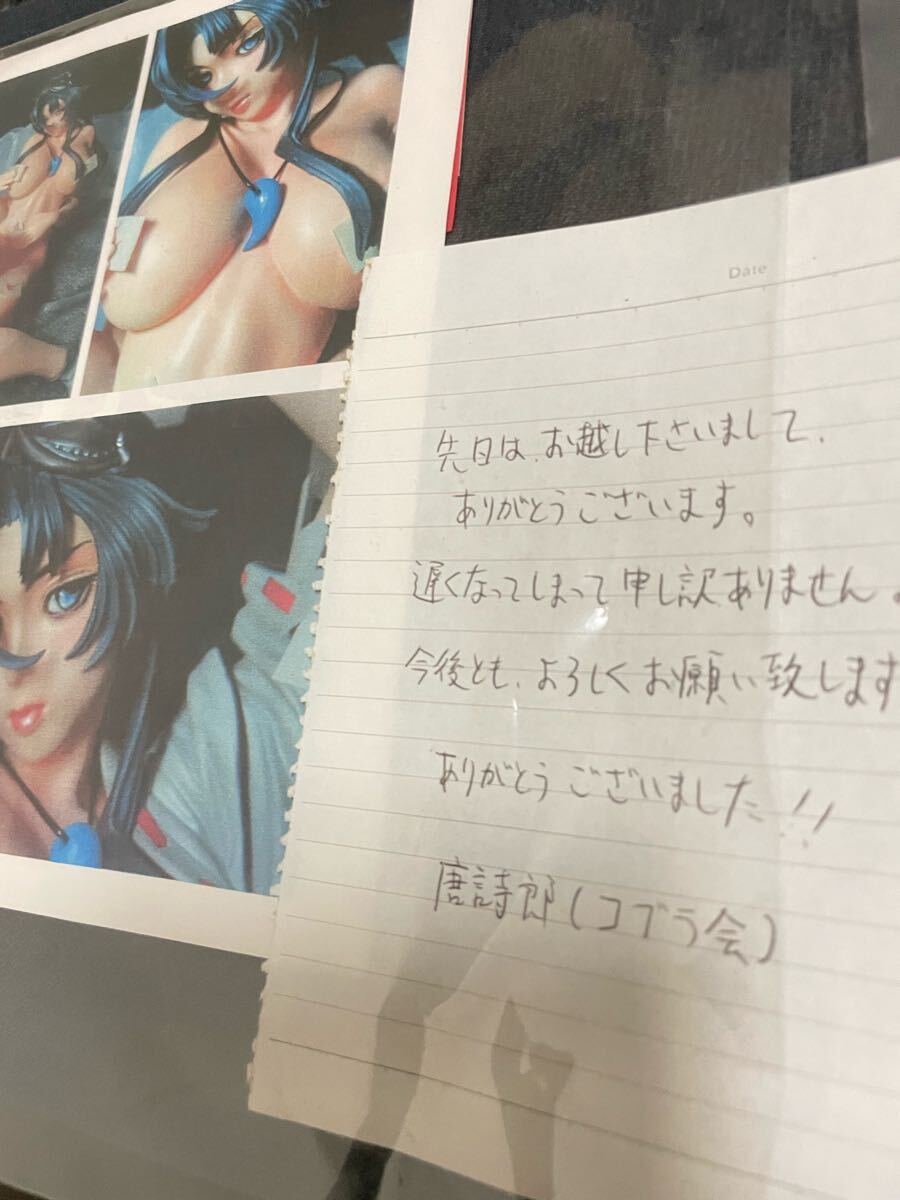 Date
先日は、お越し下さいまして、
ありがとうございます。
遅くなってしまって申し訳ありません。
今後とも、よろしくお願い致します
ありがとうございました!!
唐詩郎(コブラ会)